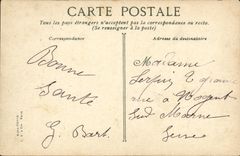 CARTE POSTALE
Tous les pays étrangers n'acceptent pas la correspondance au recto.
(Se renseigner à la poste)
Correspondance
Adresse du destinataire
Bonne
Santé
G. Bart.
Madame
rue à Nogent
Sud Marne
Seine